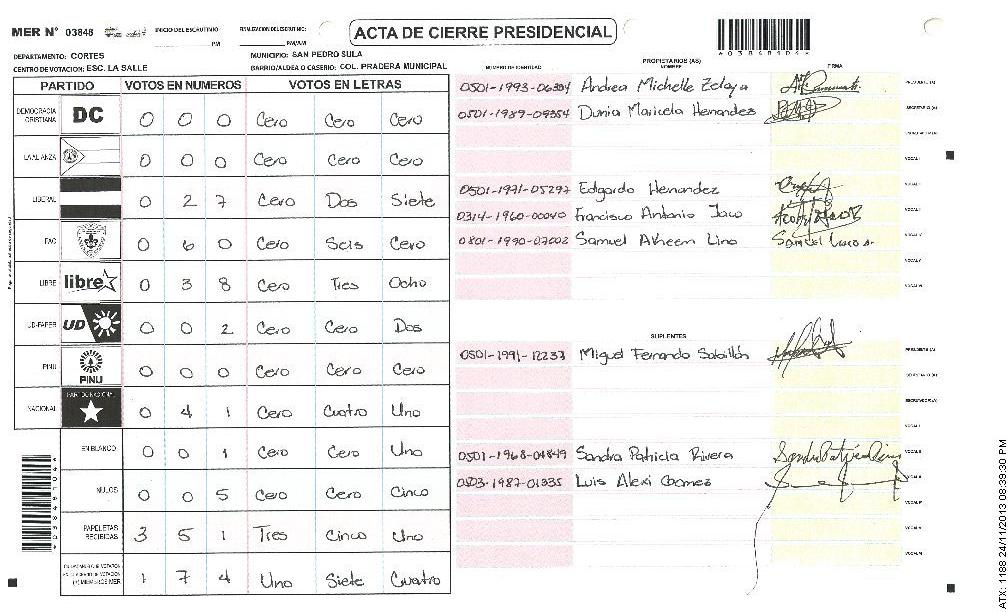 MER N° 03848
INICIO DEL ESCRUTINIO
PM
FINALIZACION DEL ESCRUTINIO:
PM/AM
ACTA DE CIERRE PRESIDENCIAL
DEPARTAMENTO: CORTES
MUNICIPIO: SAN PEDRO SULA
CENTRO DE VOTACION: ESC. LA SALLE
BARRIO/ALDEA O CASERIO: COL. PRADERA MUNICIPAL
PARTIDO VOTOS EN NUMEROS VOTOS EN LETRAS
DEMOCRACIA CRISTIANA DC 0 0 0 Cero Cero Cero
LA ALIANZA 0 0 0 Cero Cero Cero
LIBERAL 0 2 7 Cero Dos Siete
FAC 0 6 0 Cero Seis Cero
LIBRE libre 0 3 8 Cero Tres Ocho
UD-FAPER UD 0 0 2 Cero Cero Dos
PINU PINU 0 0 0 Cero Cero Cero
NACIONAL PARTIDO NACIONAL 0 4 1 Cero Cuatro Uno
EN BLANCO 0 0 1 Cero Cero Uno
NULOS 0 0 5 Cero Cero Cinco
PAPELETAS RECIBIDAS 3 5 1 Tres Cinco Uno
(+) MIEMBROS MER 1 7 4 Uno Siete Cuatro
PROPIETARIOS (AS)
NUMERO DE IDENTIDAD NOMBRE FIRMA
0501-1993-06384 Andrea Michelle Zelaya PRESIDENTE (A)
0501-1989-09354 Dunia Maricela Hernandez SECRETARIO (A)
ESCRUTADOR (A)
VOCAL I
0501-1971-05297 Edgardo Hernandez
0314-1960-00040 Francisco Antonio Jaco
0801-1990-07002 Samuel Akeem Lino
SUPLENTES
0501-1991-12237 Miguel Fernando Sabillón PRESIDENTE (A)
SECRETARIO (A)
ESCRUTADOR (A)
VOCAL I
0501-1968-04849 Sandra Patricia Rivera
0503-1987-01335 Luis Alexi Gomez
ATX: 1188 24/11/2013 08:39:30 PM